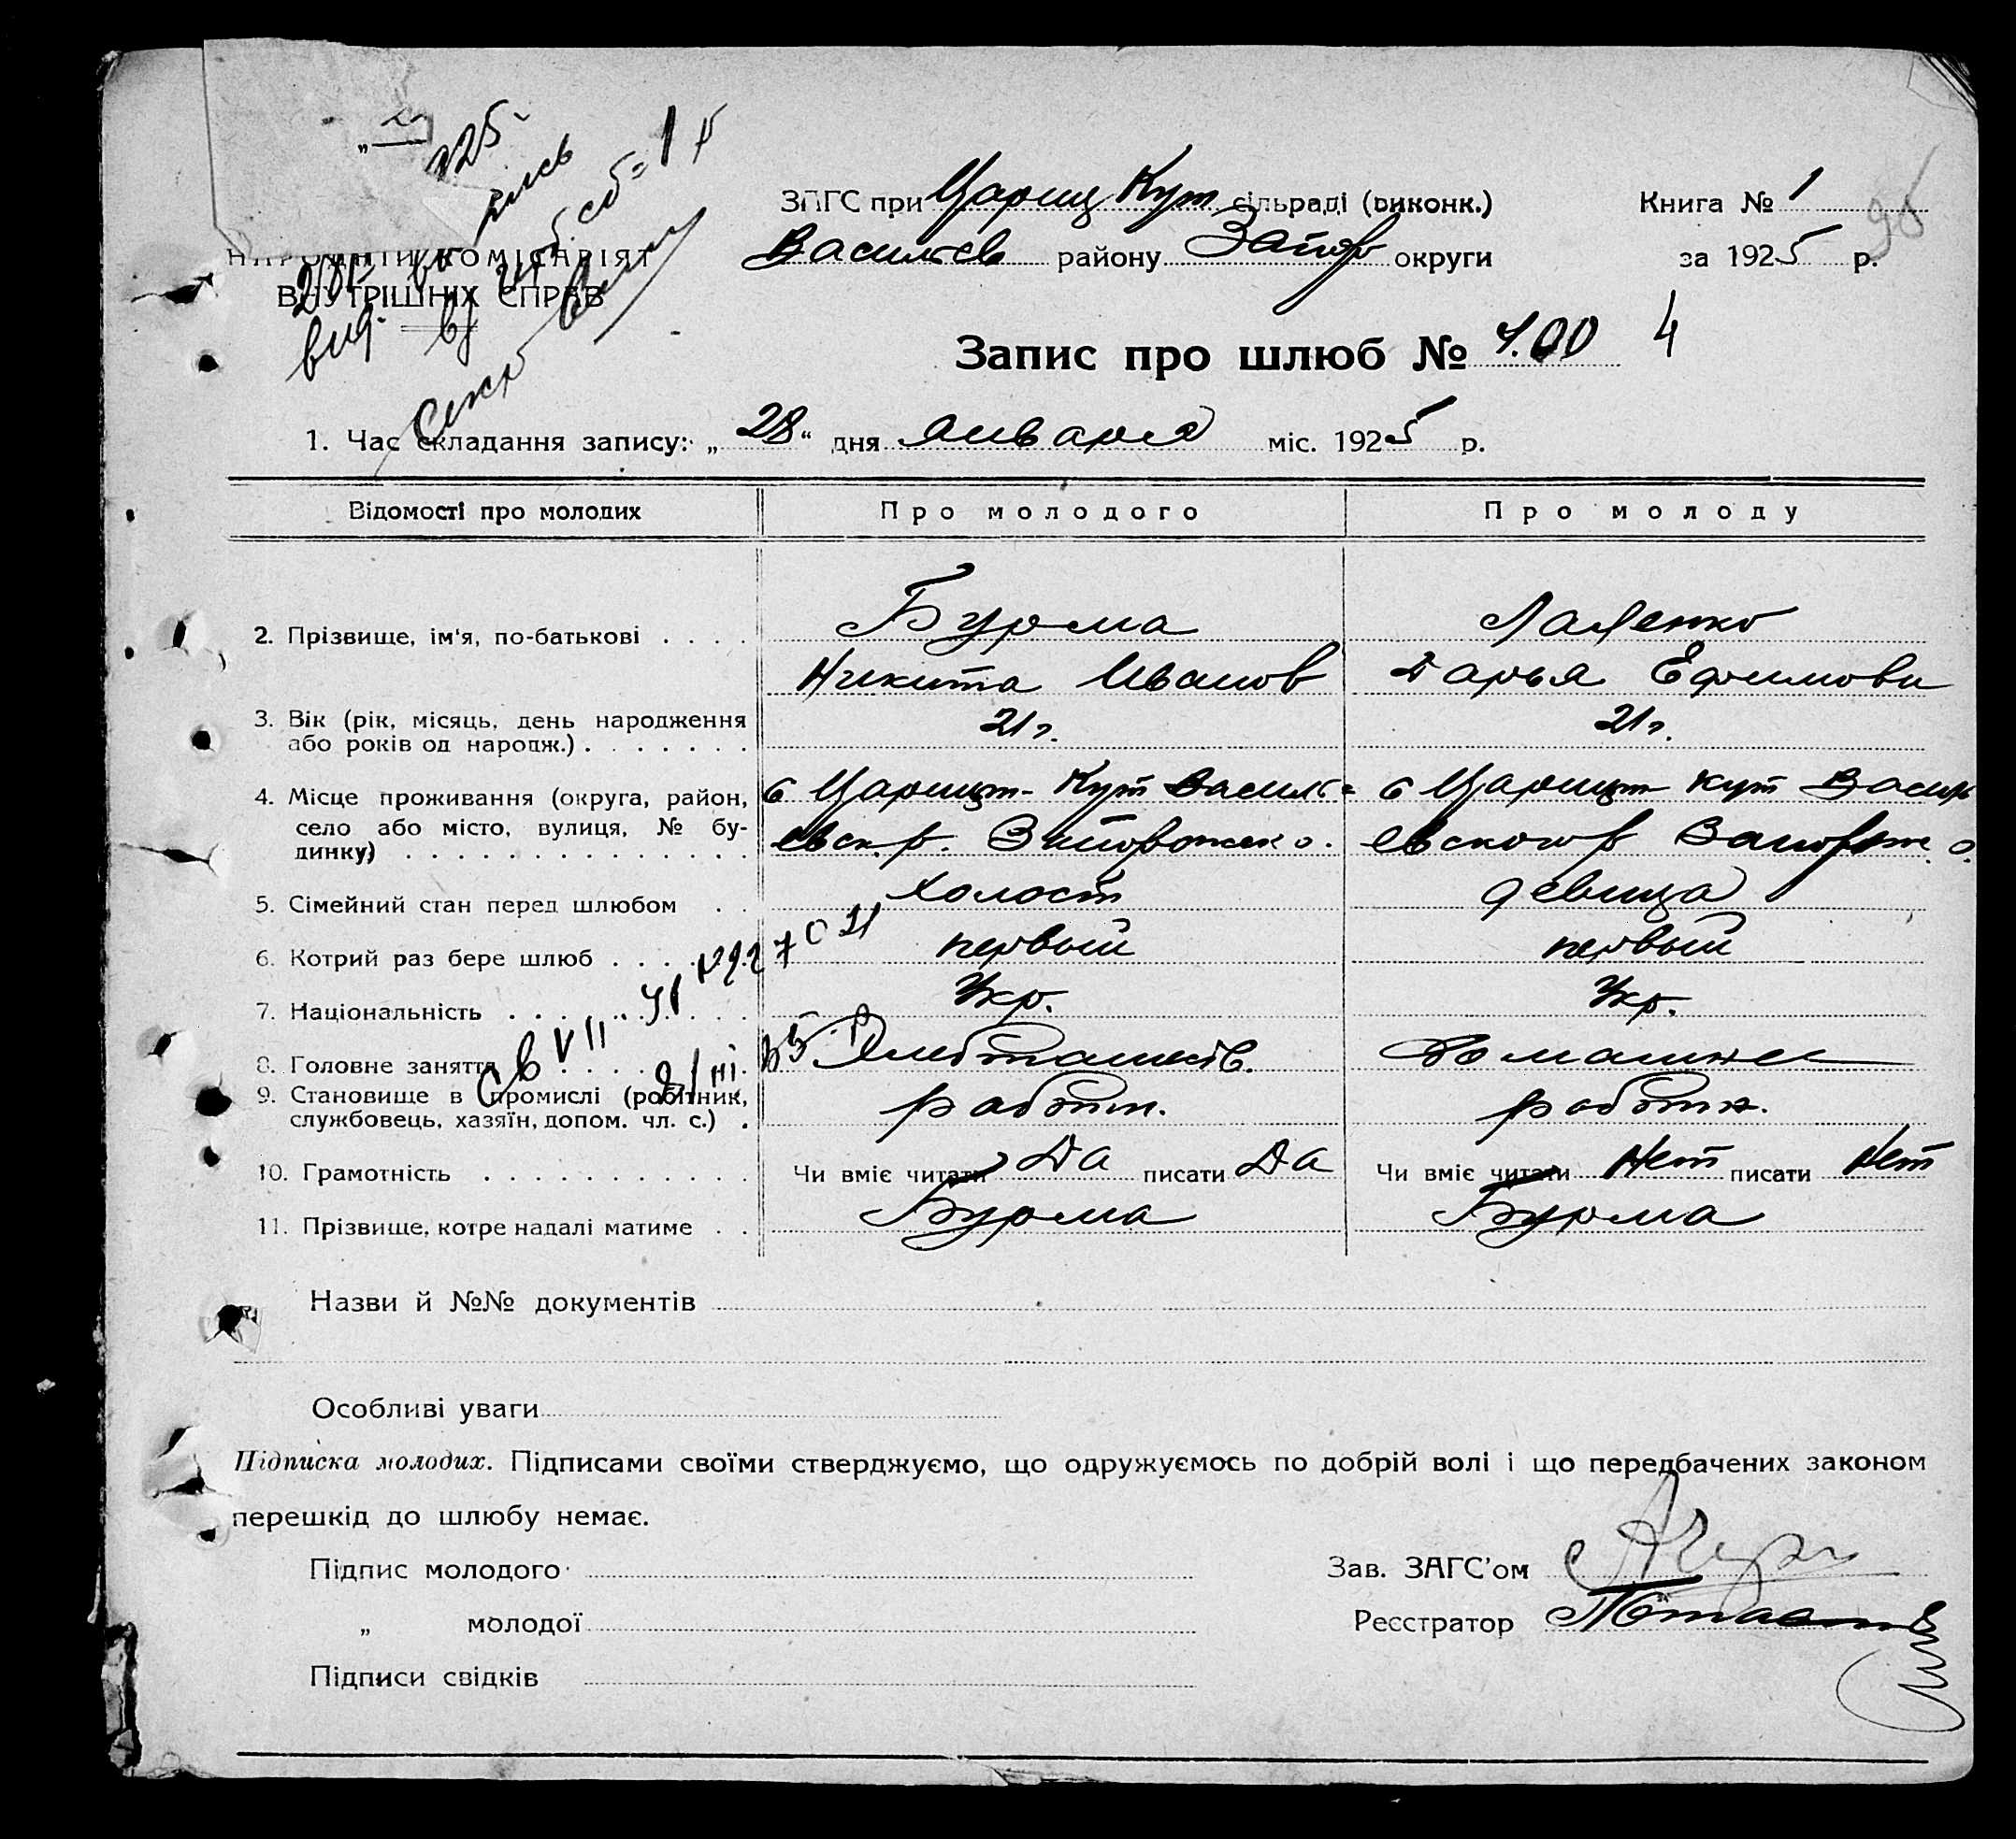 ЗАГС при Цариц Кут сільраді (виконк.) Книга № 1
Васильев району Запор округи за 1925 р.
НАРОДНІЙ КОМІСАРІЯТ
ВНУТРІШНІХ СПРАВ
Запис про шлюб № 4
1. Час складання запису: „28“ дня января міс. 1925 р.
Відомості про молодих Про молодого Про молоду
2. Прізвище, ім'я, по-батькові . . . . Бурма
Никита Иванов Дарья Ефимовн
3. Вік (рік, місяць, день народження 21 г. 21 г.
або років од народж.) . . . . . . .
4. Місце проживання (округа, район, с Царицын-Кут Василь= с Царицын Кут Василь
село або місто, вулиця, № бу- евск. р. Запорожск о. евского р Запорож. о.
динку) . . . . . . . . . . . . . .
5. Сімейний стан перед шлюбом . . холост девица
6. Котрий раз бере шлюб . . . . . . первый первый
7. Національність . . . . . . . . . Укр. Укр.
8. Головне заняття . . . . . . . Хлебопашеств. Домашнее
9. Становище в промислі (робітник, работн. работн.
службовець, хазяїн, допом. чл. с.) .
10. Грамотність . . . . . . . . . . . Чи вміє читати Да писати Да Чи вміє читати Нет писати Нет
11. Прізвище, котре надалі матиме . . Бурма Бурма
Назви й №№ документів
Особливі уваги
Підписка молодих. Підписами своїми стверджуємо, що одружуємось по добрій волі і що передбачених законом
перешкід до шлюбу немає.
Підпис молодого Зав. ЗАГС'ом
„ молодої Реєстратор
Підписи свідків